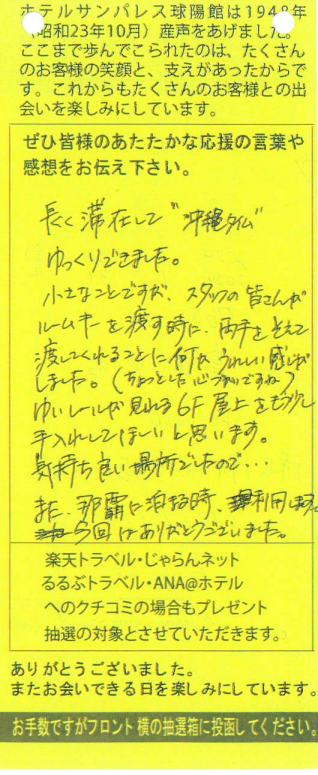 ホテルサンパレス球陽館は1948年
(昭和23年10月)産声をあげました。
ここまで歩んでこられたのは、たくさん
のお客様の笑顔と、支えがあったからで
す。これからもたくさんのお客様との出
会いを楽しみにしています。
ぜひ皆様のあたたかな応援の言葉や
感想をお伝え下さい。
長く滞在して"沖縄タイム"
ゆっくりできました。
小さなことですが、スタッフの皆さんが
ルームキーを渡す時に、両手をそえて
渡してくれることに何かうれしい感じが
しました。(ちょっとした心づかいですね)
ゆいレールが見れる6F屋上をもう少し
手入れしてほしいと思います。
気持ち良い場所でしたので…
また、那覇に泊る時、利用します。
今回はありがとうございました。
楽天トラベル・じゃらんネット
るるぶトラベル・ANA@ホテル
へのクチコミの場合もプレゼント
抽選の対象とさせていただきます。
ありがとうございました。
またお会いできる日を楽しみにしています。
お手数ですがフロント横の抽選箱に投函してください。